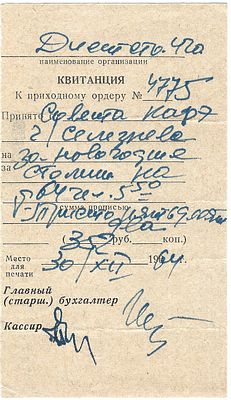 наименование организации
КВИТАНЦИЯ
К приходному ордеру № 4775
Принято Совета кафэ
г Селезнева
на за новогодние
за столики на
64 чел. 5 50
сумма прописью
Триста пятьдесят
два
(352 руб. коп.)
Место
для
печати
30/XII 1964 г.
Главный
(старш.) бухгалтер
Кассир